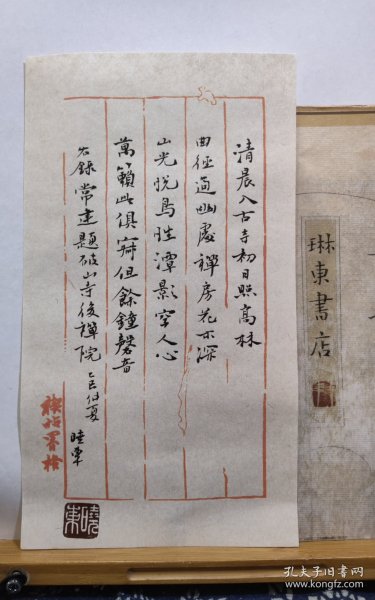 清晨入古寺初日照高林
曲徑通幽處禪房花木深
山光悅鳥性潭影空人心
萬籟此俱寂但餘鐘磬音
右錄常建題破山寺後禪院 乙巳仲夏
曉東
琳東書店
孔夫子旧书网